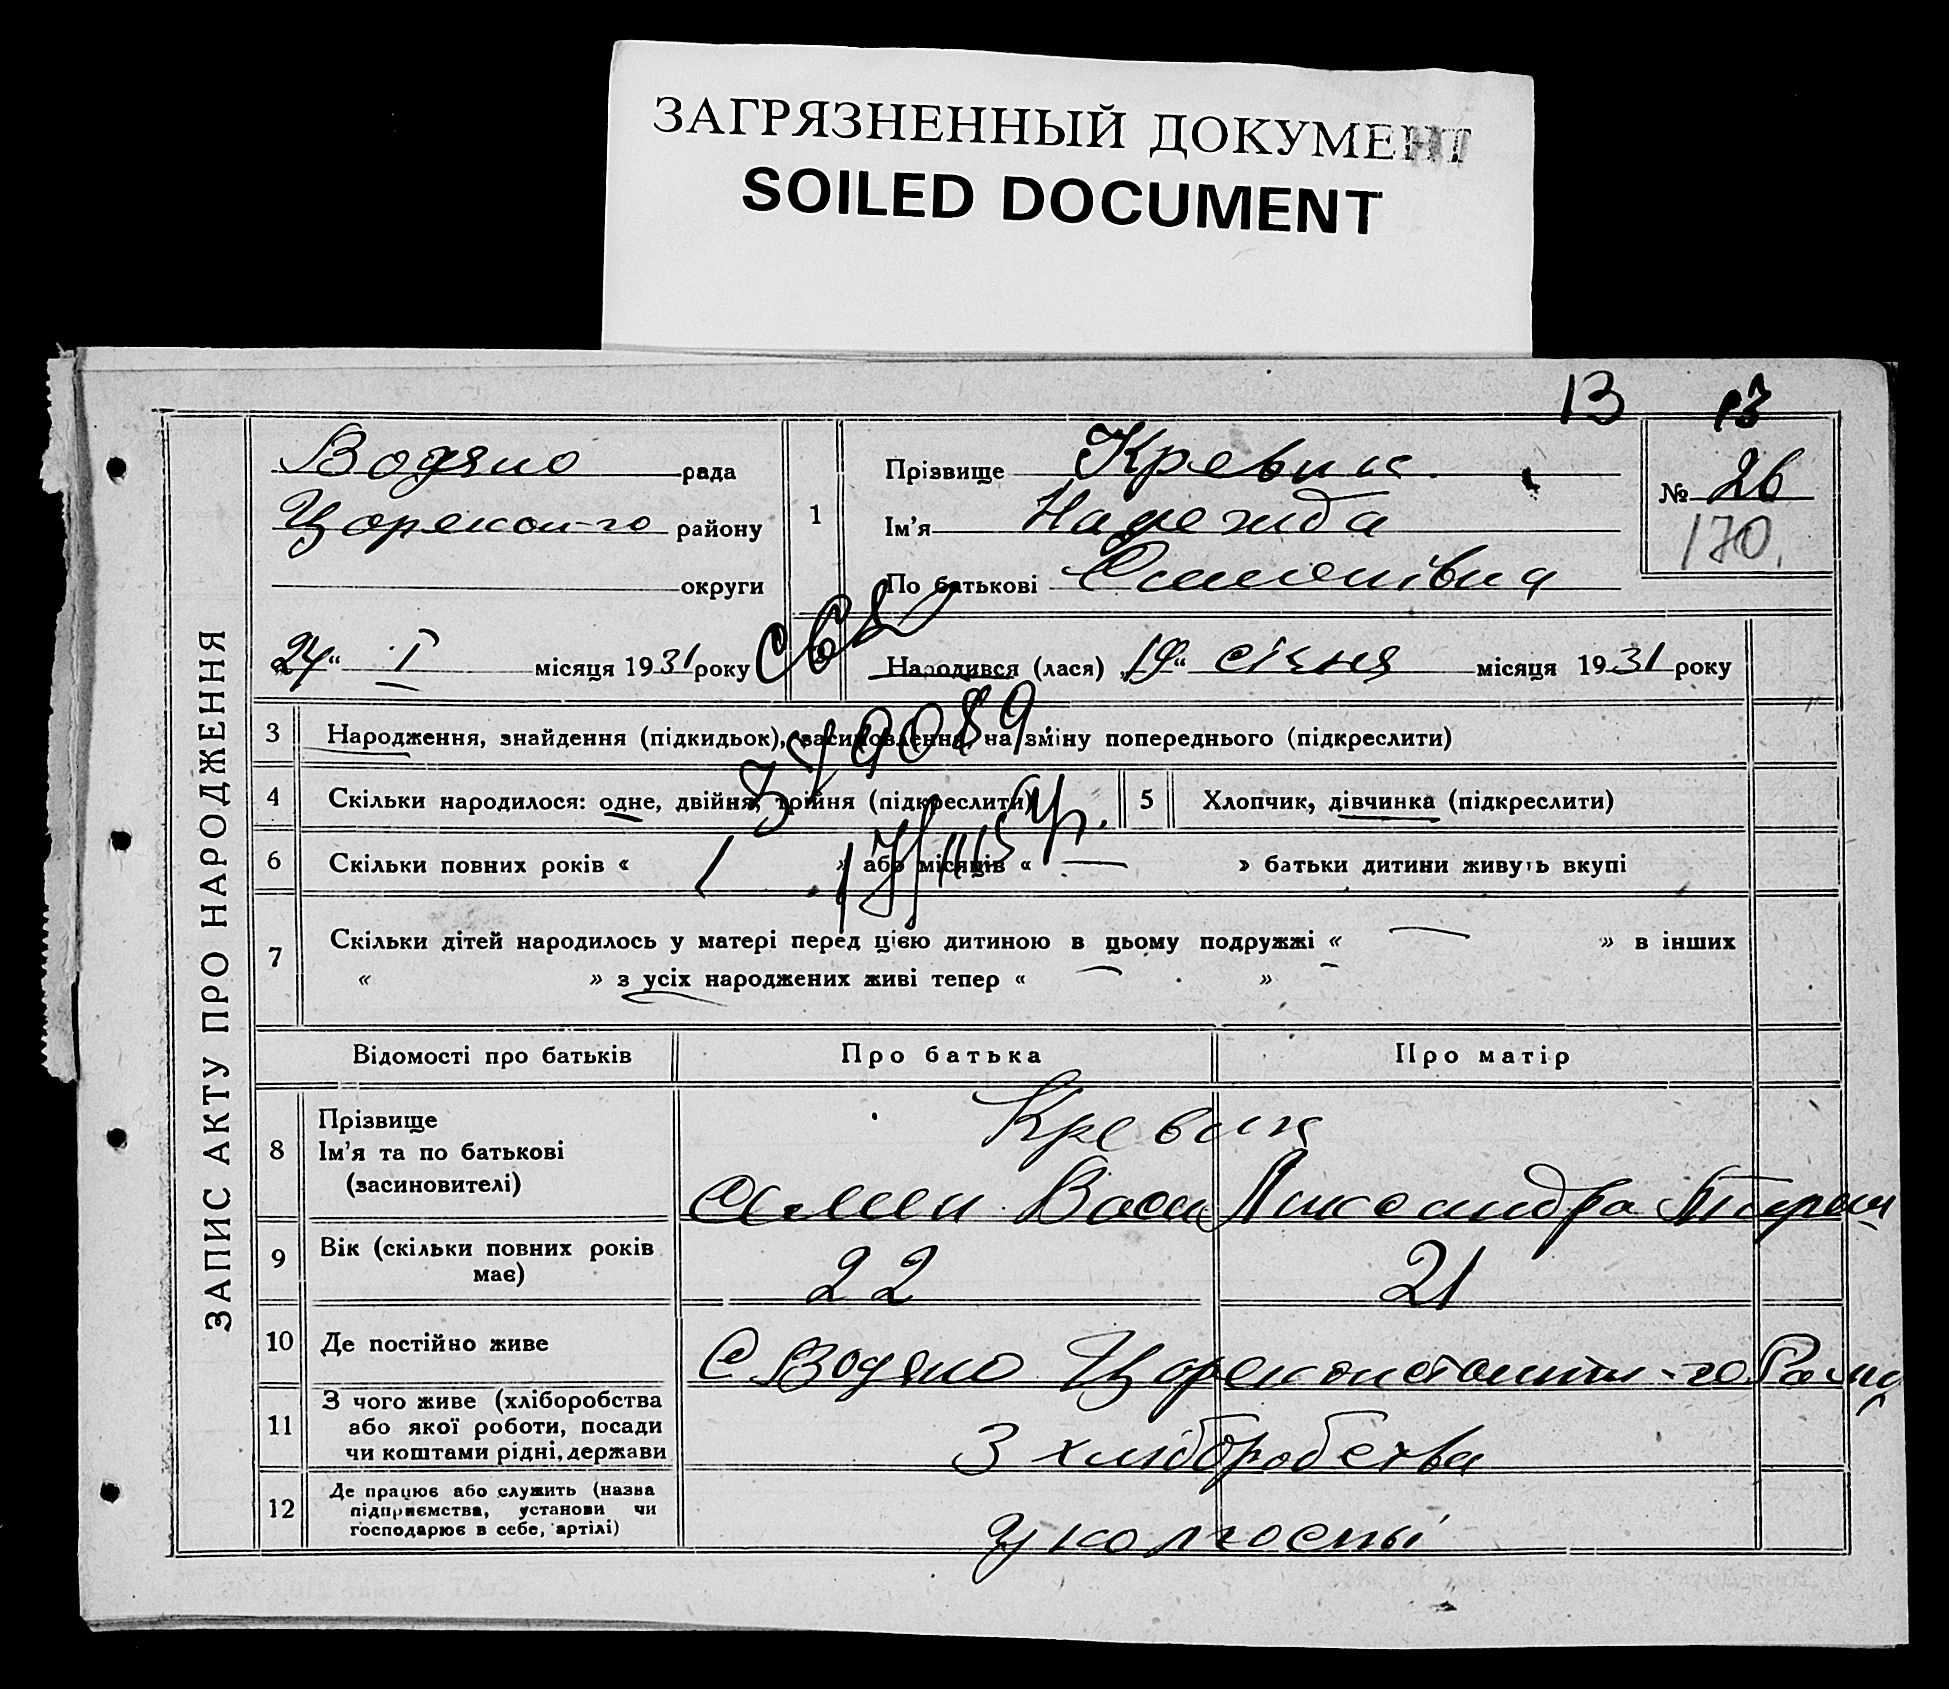 ЗАГРЯЗНЕННЫЙ ДОКУМЕНТ
SOILED DOCUMENT
13 13
ЗАПИС АКТУ ПРО НАРОДЖЕННЯ
Водяно рада
Царекон-го району
округи
1
Прізвище Кревик
Ім'я Надежида
По батькові Семенівна
№ 26
170.
„24“ I місяця 1931 року
Народився (лася) „19“ січня місяця 1931 року
3 Народження, знайдення (підкидьок), засиновлення, на зміну попереднього (підкреслити)
4 Скільки народилося: одне, двійня, трійня (підкреслити)
5 Хлопчик, дівчинка (підкреслити)
6 Скільки повних років « 1 » або місяців « — » батьки дитини живуть вкупі
7 Скільки дітей народилось у матері перед цією дитиною в цьому подружжі « — » в інших
« » з усіх народжених живі тепер « — »
Відомості про батьків Про батька Про матір
8 Прізвище
Ім'я та по батькові
(засиновителі)
Кревик
Семен Васи Ликсандра
9 Вік (скільки повних років
має)
22 21
10 Де постійно живе
С Водяно Цареконстантин-го
11 З чого живе (хліборобства
або якої роботи, посади
чи коштами рідні, держави
З хліборобства
12 Де працює або служить (назва
підприємства, установи чи
господарює в себе, артілі)
У колгоспі